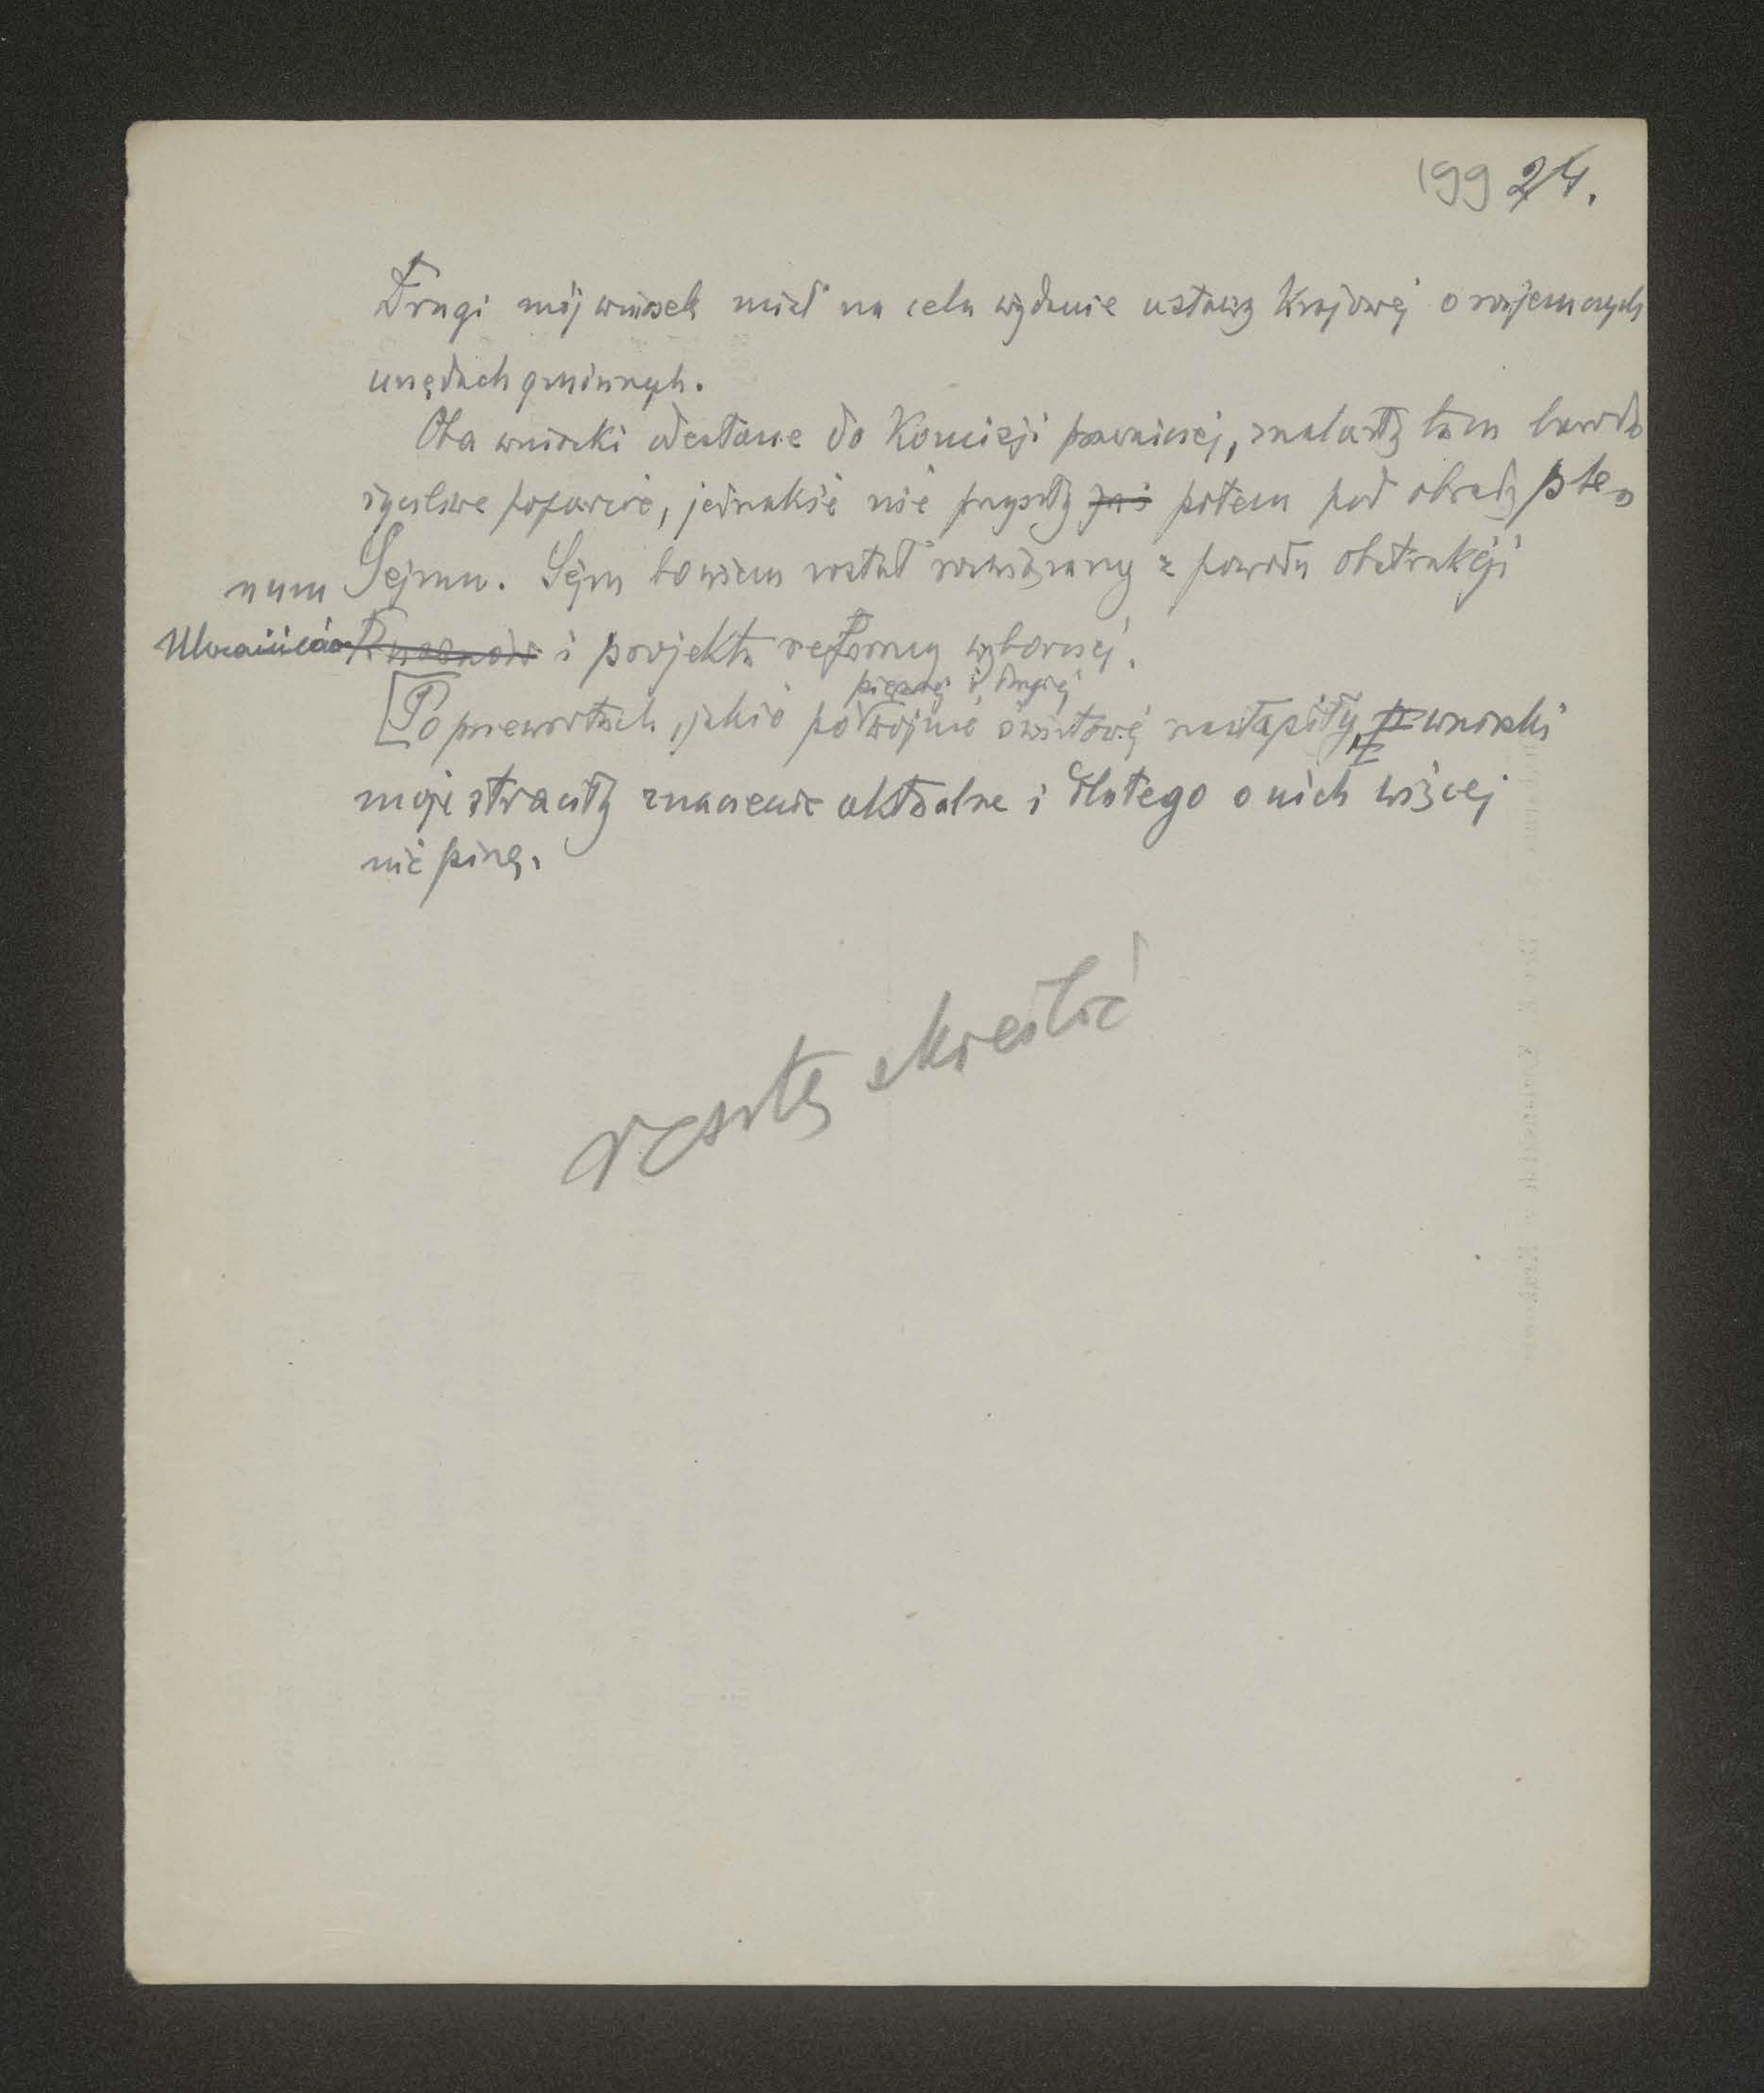 199 24.
Drugi mój wniosek miał na celu wydanie ustawy Krajowej o rozjemczych
urzędach gminnych.
Oba wnioski odesłane do Komisji prawniczej, znalazły tam bardzo
życzliwe poparcie, jednakże nie przyszły już potem pod obrady ple-
num Sejmu. Sejm bowiem został rozwiązany z powodu obstrukcji
Ukraińców i projektu reformy wyborczej.
pierwszej i drugiej
[Po przewrotach, jakie po wojnie światowej nastąpiły, wnioski
moje straciły znaczenie aktualne i dlatego o nich więcej
nie piszę.
resztę skreślić